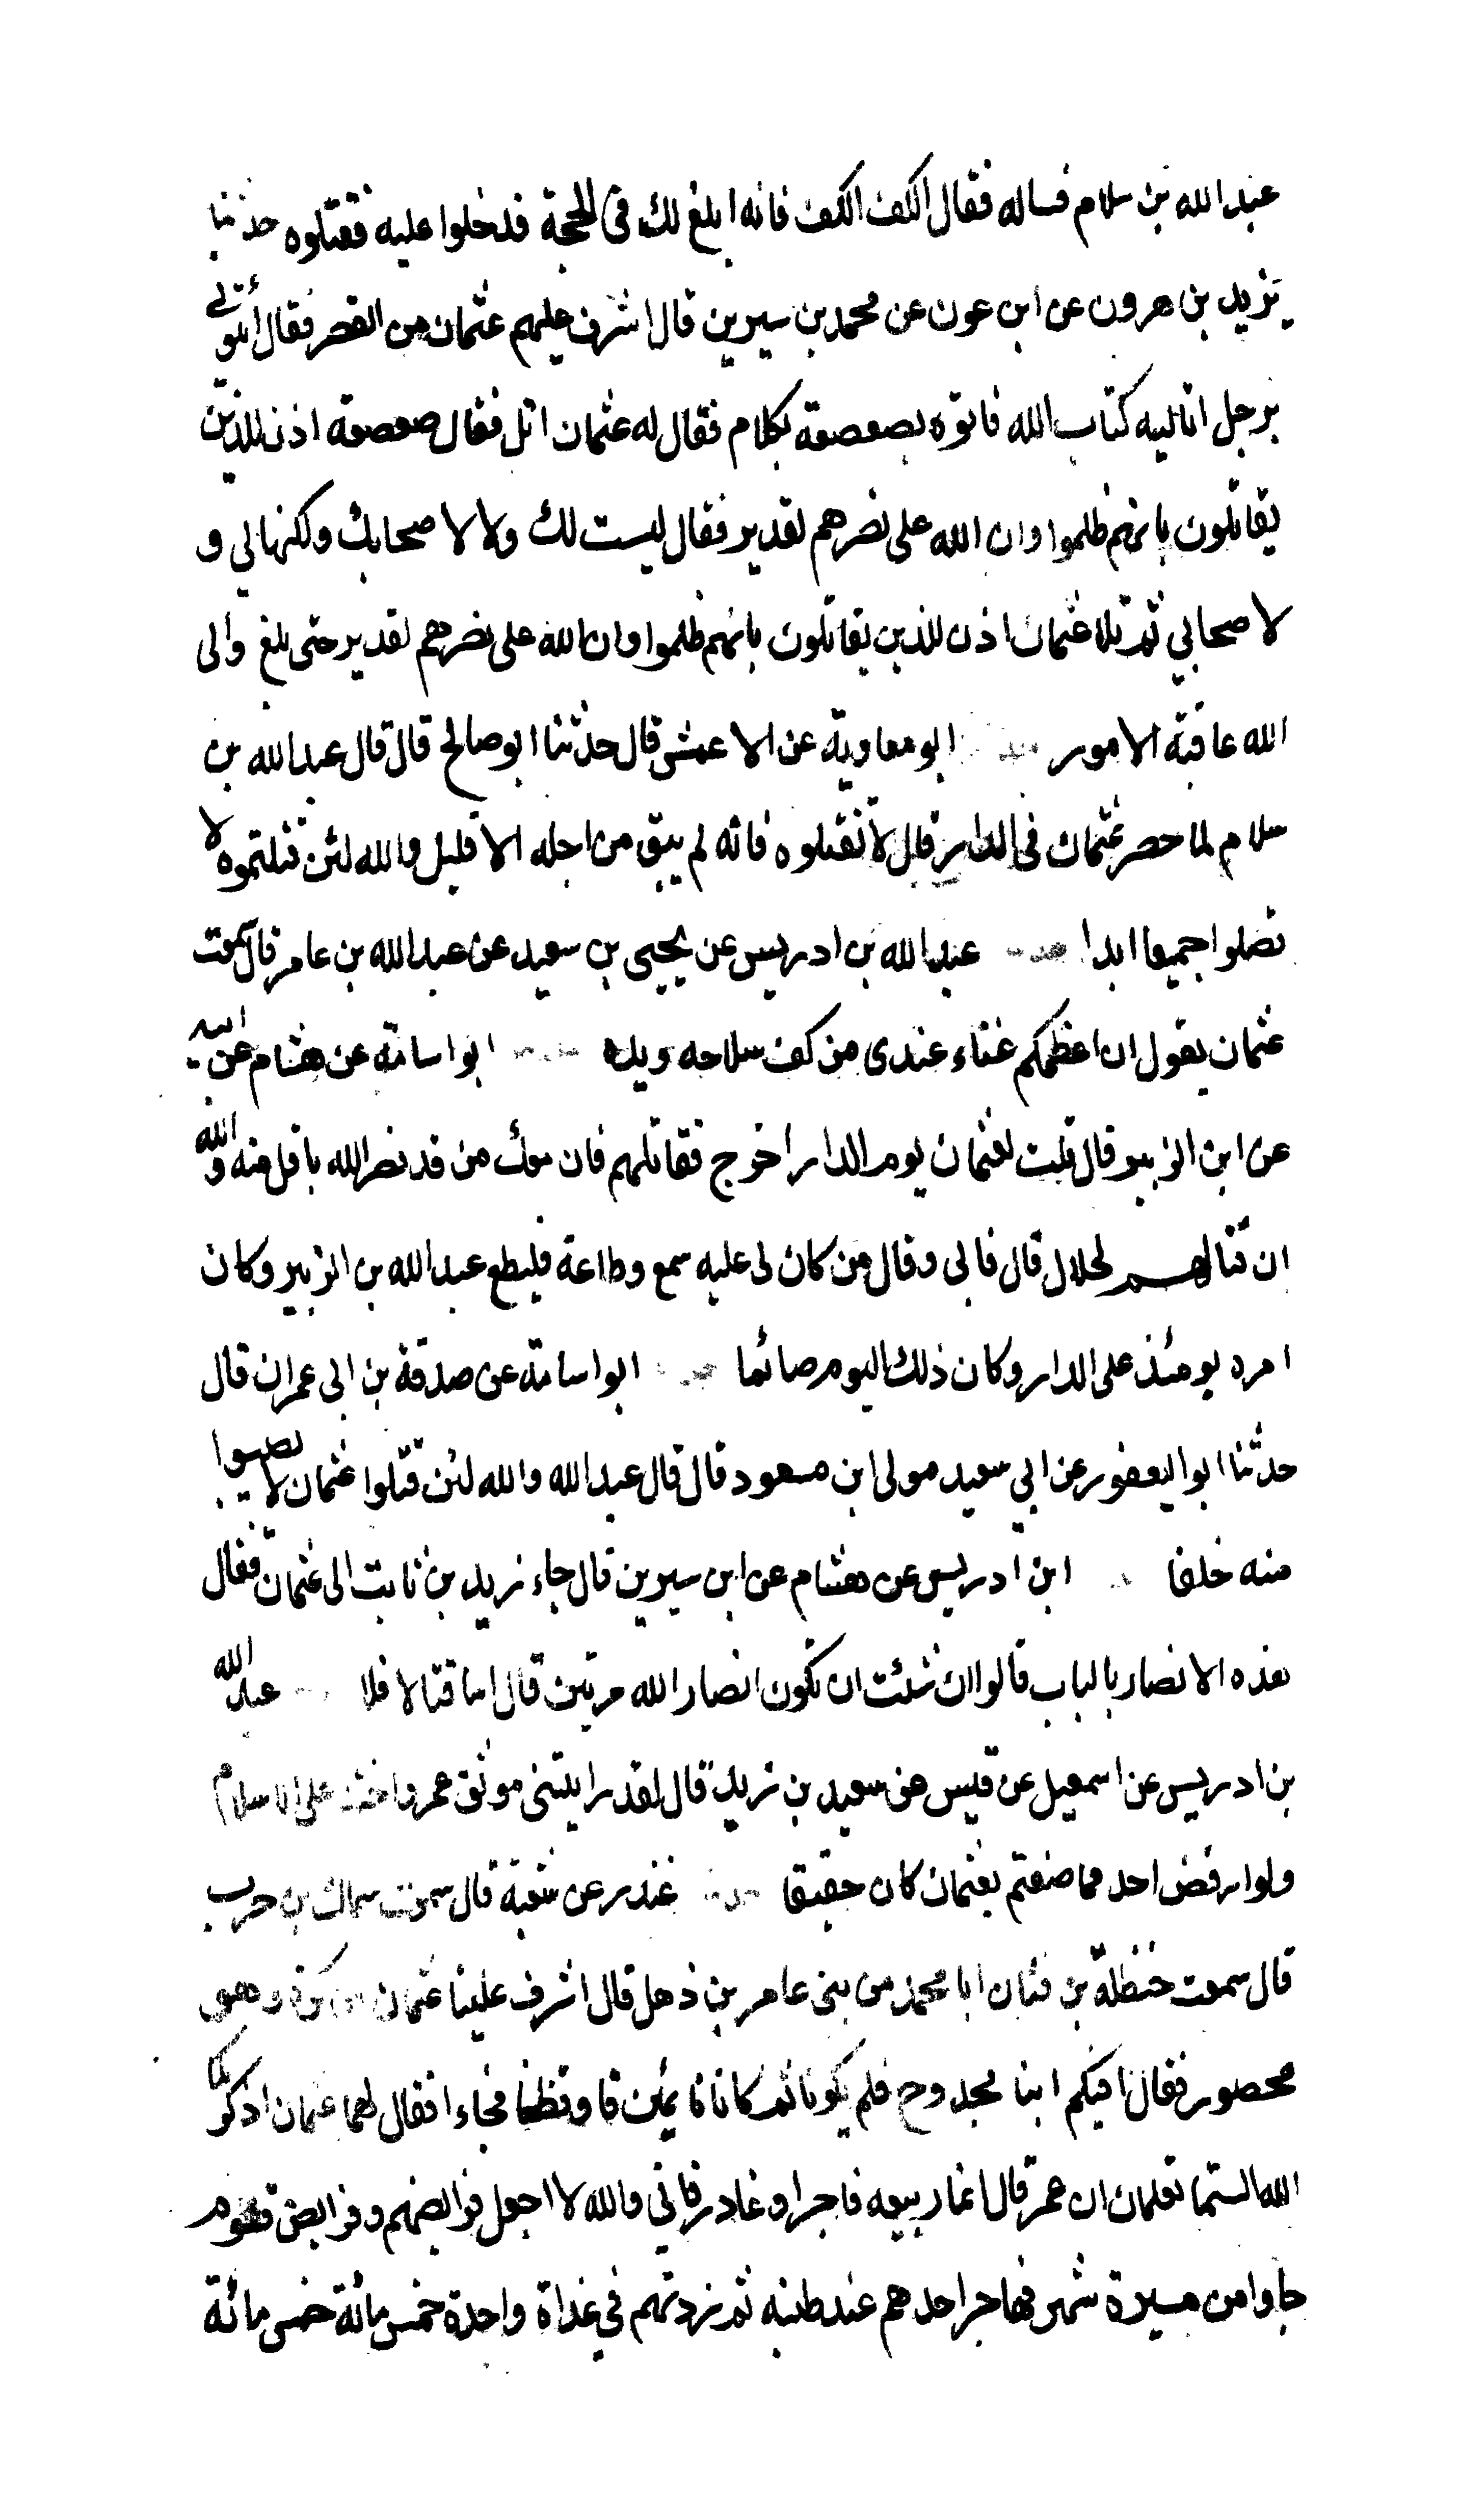 عبد الله بن سلام فساله فقال الكف الكف فانه ابلغ لك في الحجة فدخلوا عليه فقتلوه حدثنا
يزيد بن هرون عن ابن عون عن محمد بن سيرين قال اشرف عليهم عثمان من القصر فقال ائتوني
برجل اتاليه كتاب الله فاتوه بصعصعة بكلام فقال له عثمان اتل فقال صعصعة اذن للذين
يقاتلون بانهم ظلموا وان الله على نصرهم لقدير فقال ليست لك ولا لاصحابك ولكنها لي و
لاصحابي ثم تلا عثمان اذن للذين يقاتلون بانهم ظلموا وان الله على نصرهم لقدير حتى بلغ والى
الله عاقبة الامور ابو معاوية عن الاعمش قال حدثنا ابو صالح قال قال عبد الله بن
سلام لما حصر عثمان في الدار قال لا تقتلوه فانه لم يبق من اجله الا قليل والله لئن قتلتموه لا
تصلوا جميعا ابدا عبد الله بن ادريس عن يحيى بن سعيد عن عبد الله بن عامر قال سمعت
عثمان يقول ان اعظمكم غناء عندى من كف سلاحه ويده ابو اسامة عن هشام عن ابيه
عن ابن الزبير قال قلت لعثمان يوم الدار اخرج فقاتلهم فان معك من قد نصر الله باقل منه والله
ان قتالهم لحلال قال فابى وقال من كان لى عليه سمع وطاعة فليطع عبد الله بن الزبير وكان
امره يومئذ على الدار وكان ذلك اليوم صائما ابو اسامة عن صدقة بن ابى عمران قال
حدثنا ابو اليعفور عن ابي سعيد مولى ابن مسعود قال قال عبد الله والله لئن قتلوا عثمان لا يصيبوا
منه خلفا ابن ادريس عن هشام عن ابن سيرين قال جاء زيد بن ثابت الى عثمان فقال
هذه الانصار بالباب قالوا ان شئت ان نكون انصار الله مرتين قال اما قتالا فلا عبد الله
بن ادريس عن اسمعيل عن قيس عن سعيد بن زيد قال لقد رايتنى موثق عمر واخته على الاسلام
ولو ارفض احد مما صنعتم بعثمان كان حقيقا غندر عن شعبة قال سمعت سماك بن حرب
قال سمعت حنظلة بن قنان ابا محمد من بنى عامر بن ذهل قال اشرف علينا عثمان من كوة وهو
محصور فقال افيكم ابنا مجدوح فلم يكونا ثم كانا نائمين فاوقظا فجاءا فقال لهما عثمان اذكركما
الله الستما تعلمان ان عمر قال انما ربيعه فاجر او غادر فاني والله لا اجعل فرائضهم وفرائض قوم
جاوا من مسيرة شهر فهاجر احدهم عند طنبه ثم زدتهم في غداة واحدة خمس مائة خمس مائة